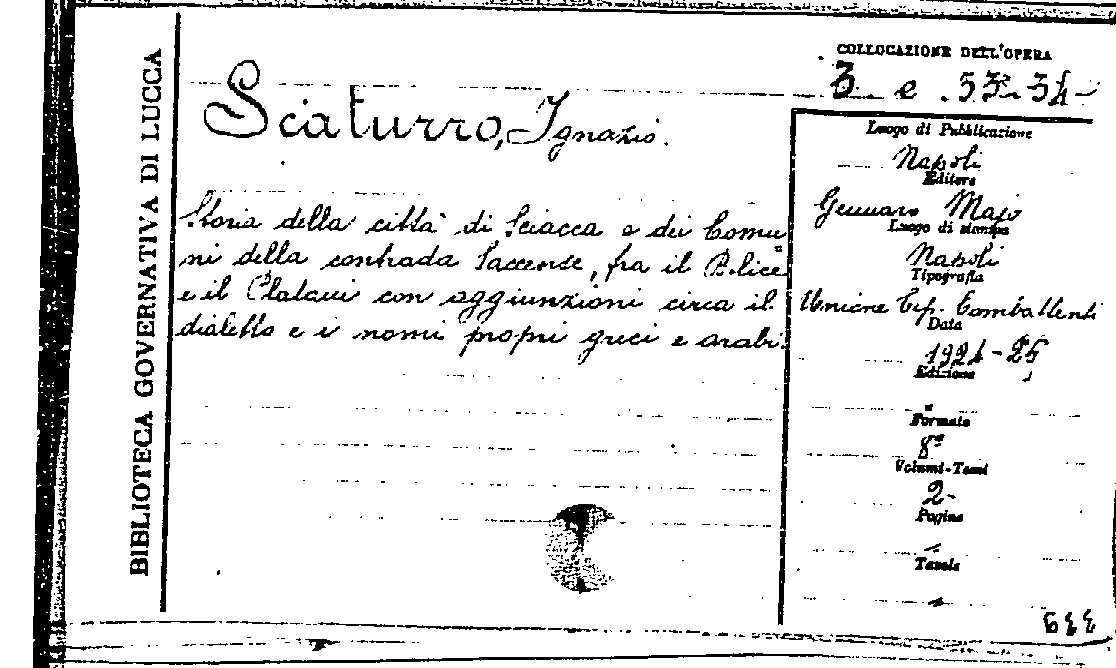 BIBLIOTECA GOVERNATIVA DI LUCCA
Sciaturro, Ignazio.
Storia della città di Sciacca e dei Comu
ni della contrada Saccense, fra il Belice
e il Platani con aggiunzioni circa il
dialetto e i nomi propri greci e arabi.
COLLOCAZIONE DELL'OPERA
3. e .53.34
Luogo di Pubblicazione
Napoli
Editore
Gennaro Majo
Luogo di stampa
Napoli
Tipografia
Unione Tip. Combattenti
Data
1924-25
Edizione
"
Formato
8º
Volumi-Tomi
2-
Pagine
Tavole